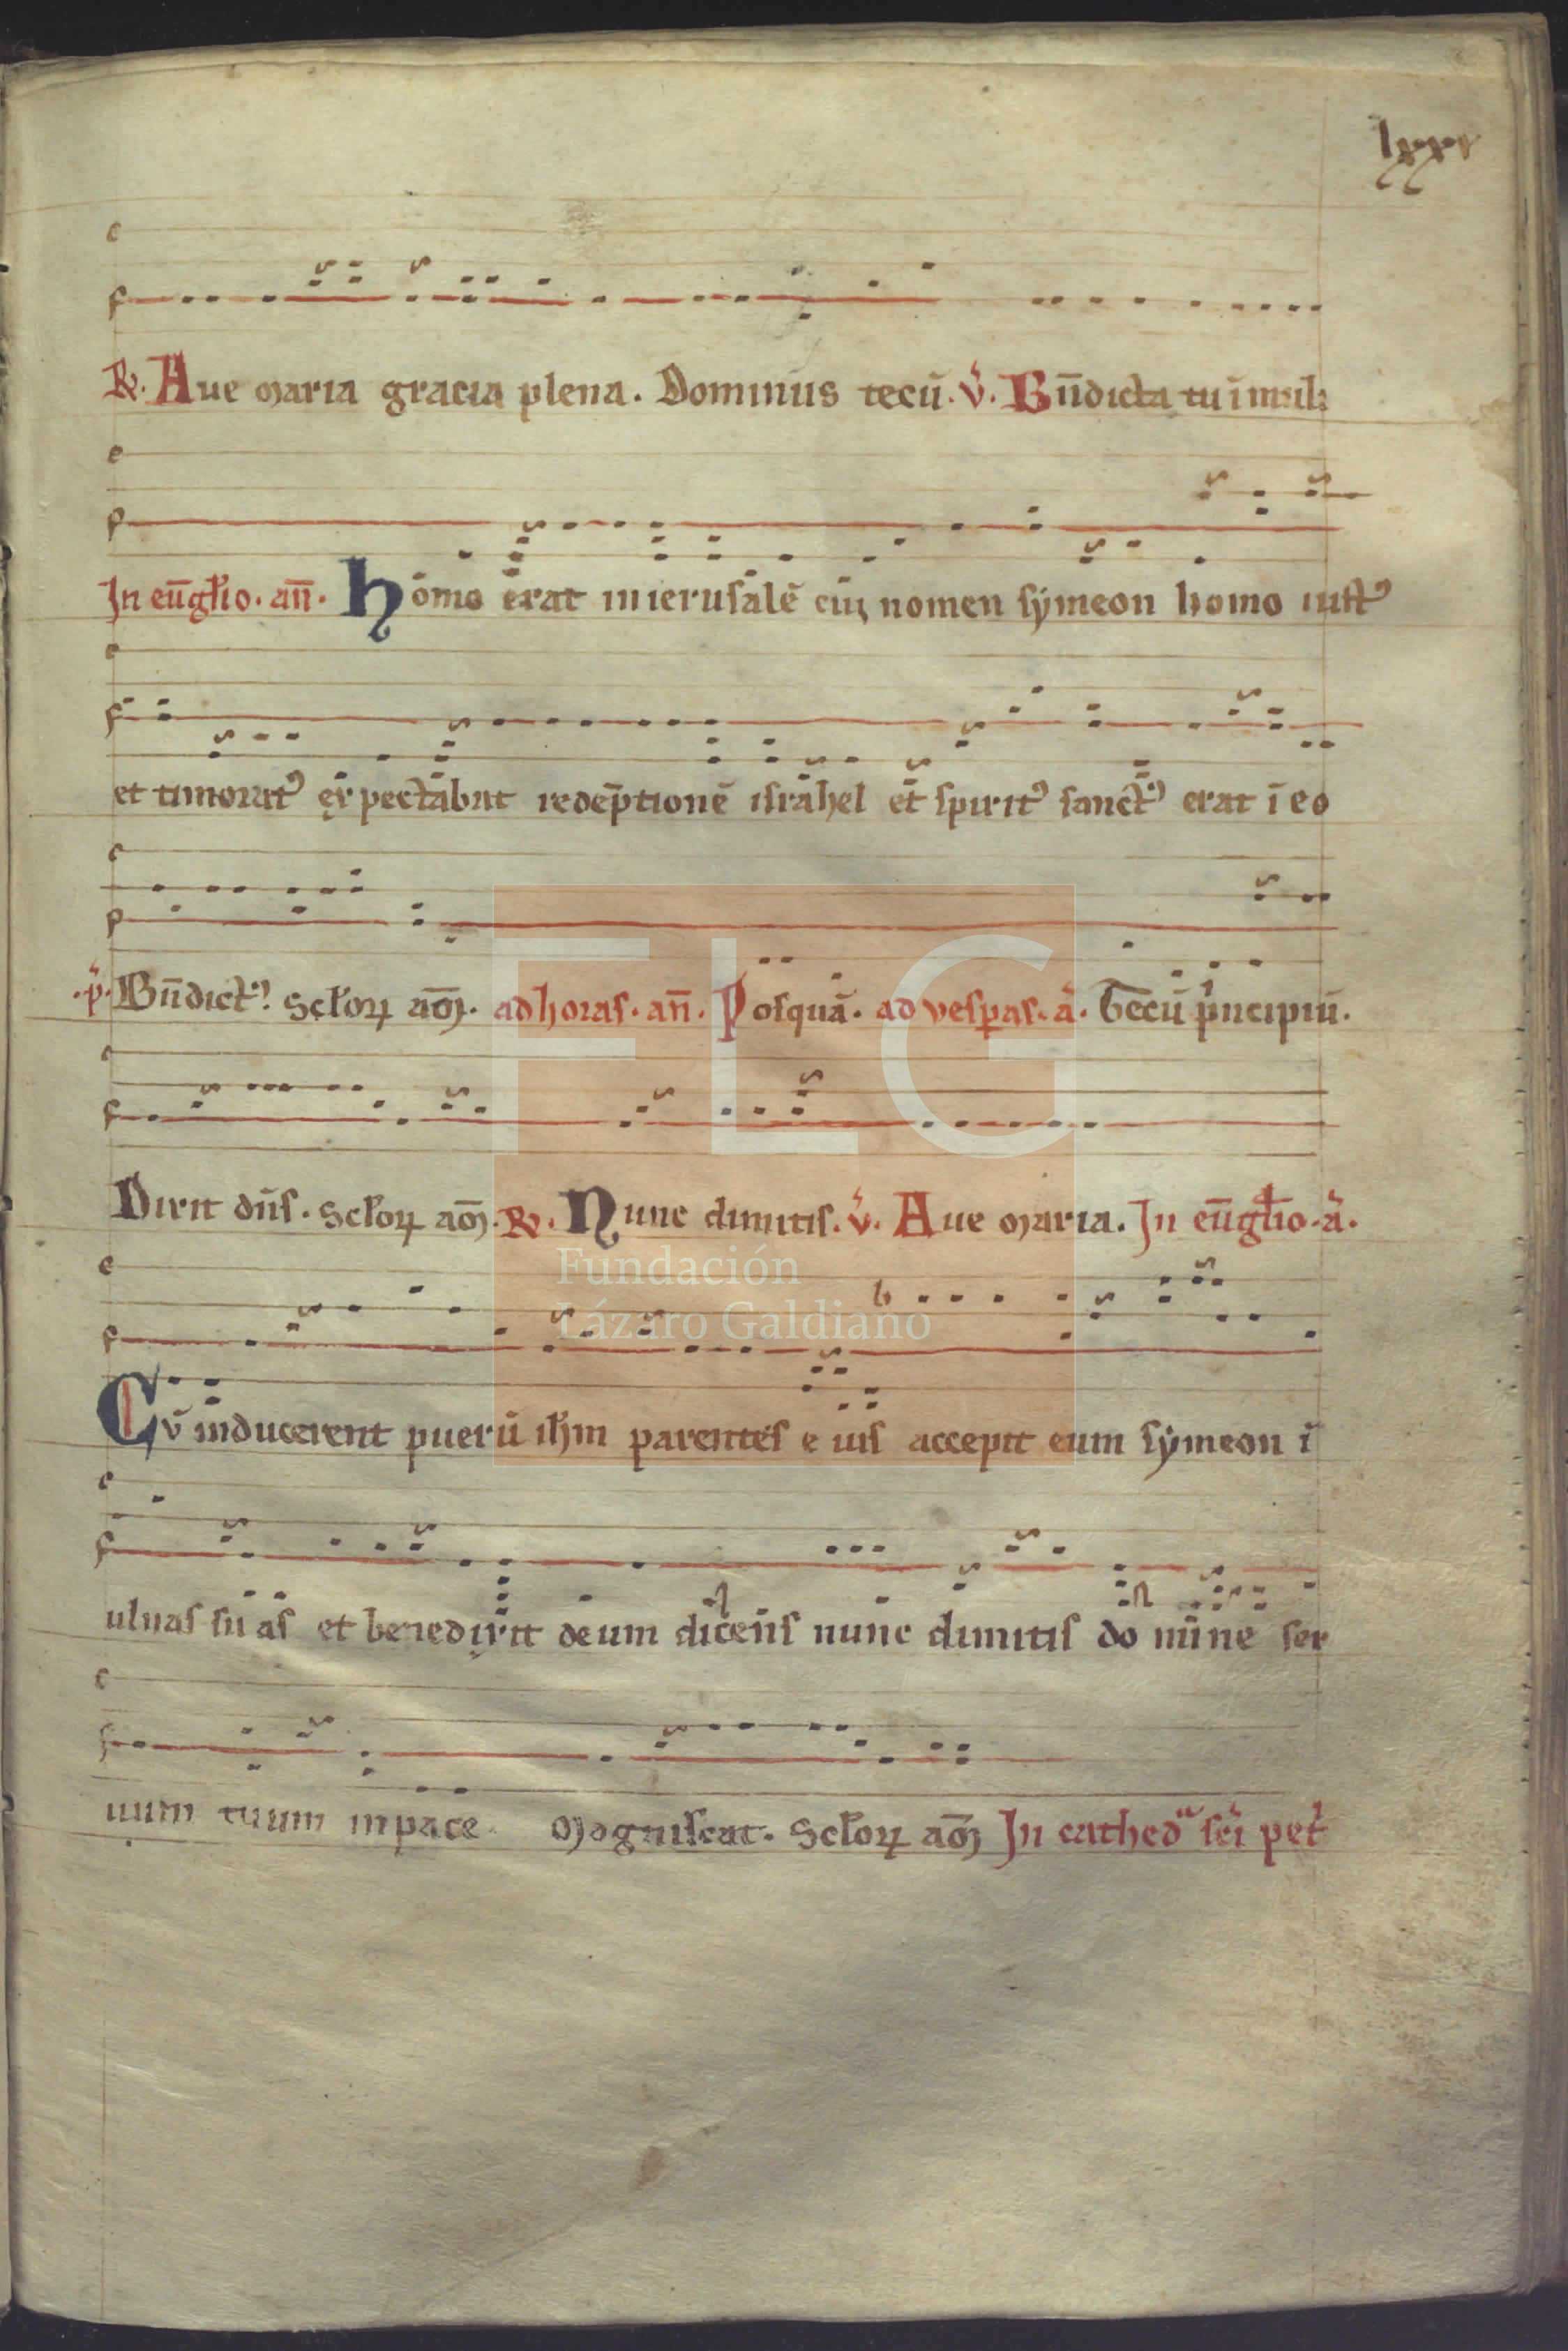 lxxv
℟. Aue maria gracia plena. Dominus tecū. v̄. Bn̄dicta tu ī mul
In eūgl̄io. an̄. homo erat in ierusalē cuiꝰ nomen symeon homo iustꝰ
et timoratꝰ expectabat redēptionē israhel et spiritꝰ sanctꝰ erat ī eo
p̄. Bn̄dictꝰ sclꝫoꝝ am̄. ad horas. an̄. Posquā. ad vesꝑas. a̅. Tecū pͥncipiū.
Dixit dn̄s. sclꝫoꝝ am̄. ℟. Nunc dimitis. v̄. Aue maria. In eūgl̄io. a̅.
Cū inducerent puerū ih̄m parentes eius accepit eum symeon ī
ulnas suas et benedixit deum dicens nunc dimitis domine ser
uum tuum in pace. Magnificat. sclꝫoꝝ am̄ In cathedͣ sc̄i pet
FLG
Fundación
Lázaro Galdiano